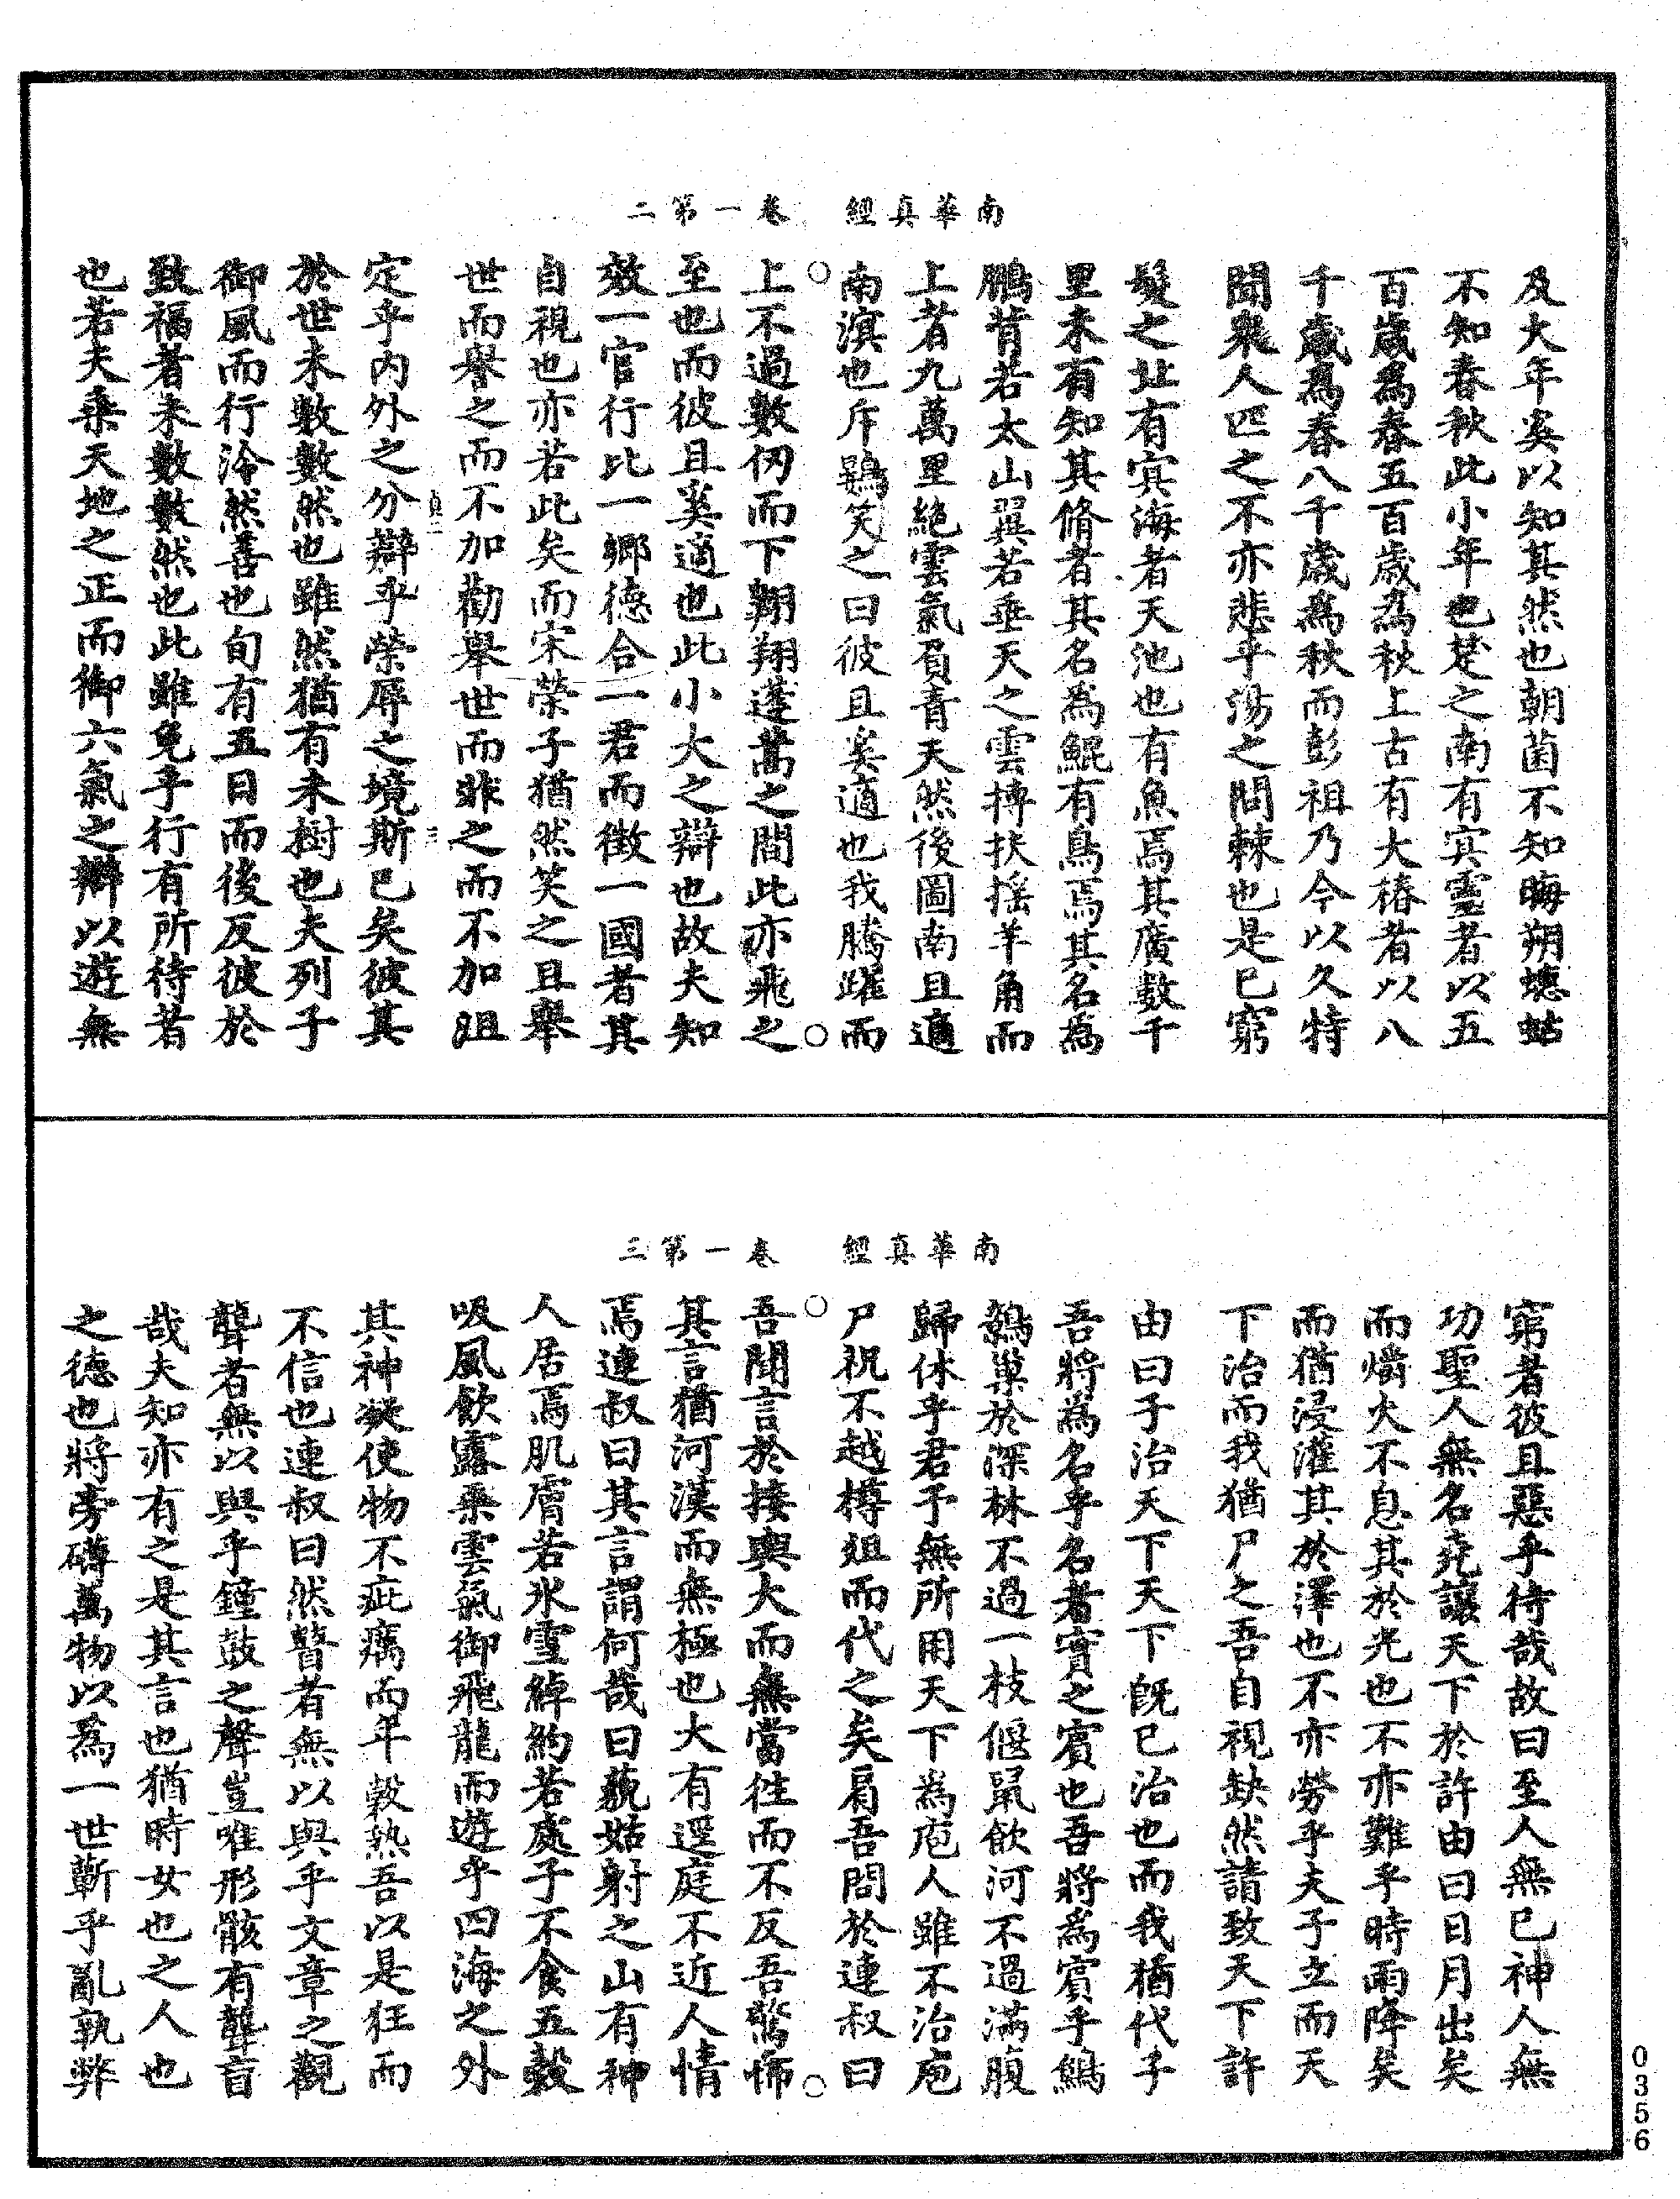 南華真經　卷一第二
及大年奚以知其然也朝菌不知晦朔蟪蛄
不知春秋此小年也楚之南有冥靈者以五
百歲為春五百歲為秋上古有大椿者以八
千歲為春八千歲為秋而彭祖乃今以久特
聞衆人匹之不亦悲乎湯之問棘也是已窮
髮之北有冥海者天池也有魚焉其廣數千
里未有知其脩者其名為鯤有鳥焉其名為
鵬背若太山翼若垂天之雲摶扶搖羊角而
上者九萬里絕雲氣負青天然後圖南且適
南溟也斥鷃笑之曰彼且奚適也我騰躍而
上不過數仞而下翱翔蓬蒿之間此亦飛之
至也而彼且奚適也此小大之辯也故夫知
效一官行比一鄉德合一君而徵一國者其
自視也亦若此矣而宋榮子猶然笑之且舉
世而譽之而不加勸舉世而非之而不加沮
定乎內外之分辯乎榮辱之境斯已矣彼其
於世未數數然也雖然猶有未樹也夫列子
御風而行泠然善也旬有五日而後反彼於
致福者未數數然也此雖免乎行有所待者
也若夫乘天地之正而御六氣之辯以遊無
南華真經　卷一第三
窮者彼且惡乎待哉故曰至人無已神人無
功聖人無名堯讓天下於許由曰日月出矣
而爝火不息其於光也不亦難乎時雨降矣
而猶浸灌其於澤也不亦勞乎夫子立而天
下治而我猶尸之吾自視缺然請致天下許
由曰子治天下天下既已治也而我猶代子
吾將為名乎名者實之賓也吾將為賓乎鷦
鷯巢於深林不過一枝偃鼠飲河不過滿腹
歸休乎君予無所用天下為庖人雖不治庖
尸祝不越樽俎而代之矣肩吾問於連叔曰
吾聞言於接輿大而無當往而不反吾驚怖
其言猶河漢而無極也大有逕庭不近人情
焉連叔曰其言謂何哉曰藐姑射之山有神
人居焉肌膚若冰雪綽約若處子不食五穀
吸風飲露乘雲氣御飛龍而遊乎四海之外
其神凝使物不疵癘而年穀熟吾以是狂而
不信也連叔曰然瞽者無以與乎文章之觀
聾者無以與乎鐘鼓之聲豈唯形骸有聾盲
哉夫知亦有之是其言也猶時女也之人也
之德也將旁礡萬物以為一世蘄乎亂孰弊
0356